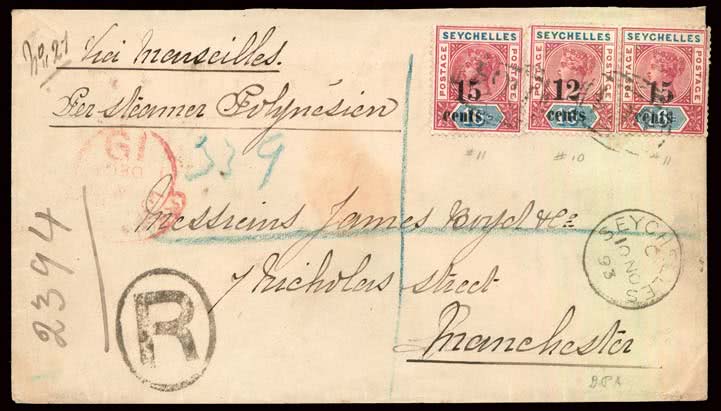 No. 27
Via Marseilles.
Per steamer Polynésien
SEYCHELLES
POSTAGE
POSTAGE
15
cents
SEYCHELLES
POSTAGE
POSTAGE
12
cents
SEYCHELLES
POSTAGE
POSTAGE
15
cents
#11
#10
#11
339
2394
Messieurs James Boyd & Co
7 Nicholas street
Manchester
R
SEYCHELLE
C
10 NO
93